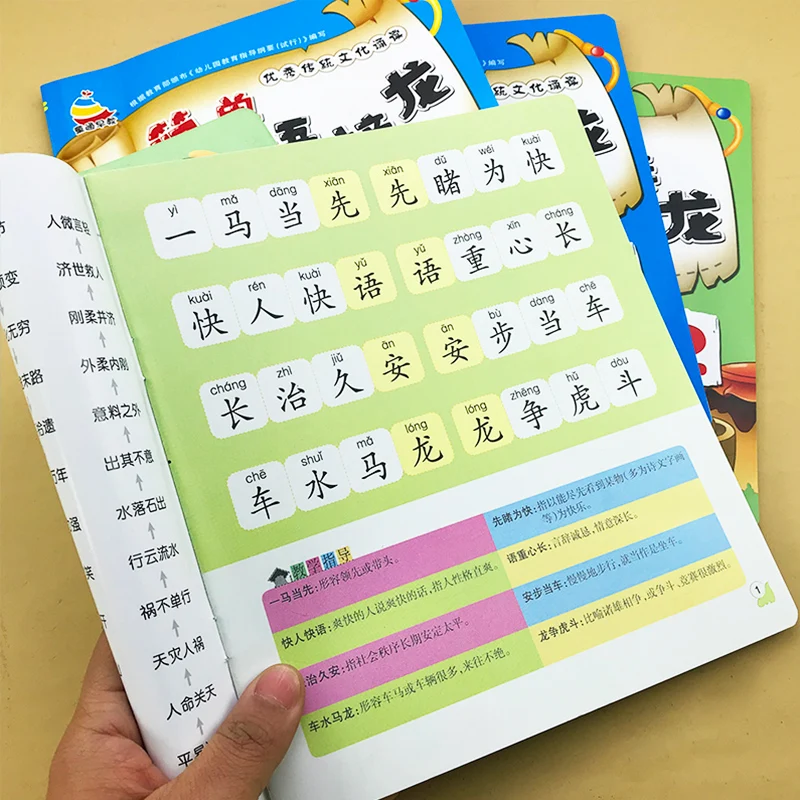 根据教育部颁布《幼儿园教育指导纲要(试行)》编写
优秀传统文化诵读
童画早教
龙
统文化诵读
编写
龙
龙
yì mǎ dāng xiān xiān dǔ wéi kuài
一马当先 先睹为快
kuài rén kuài yǔ yǔ zhòng xīn cháng
快人快语 语重心长
cháng zhì jiǔ ān ān bù dàng chē
长治久安 安步当车
chē shuǐ mǎ lóng lóng zhēng hǔ dòu
车水马龙 龙争虎斗
教学指导
一马当先:形容领先或带头。
快人快语:爽快的人说爽快的话,指人性格直爽。
治久安:指社会秩序长期安定太平。
车水马龙:形容车马或车辆很多,来往不绝。
先睹为快:指以能尽先看到某物(多为诗文字画
等)为快乐。
语重心长:言辞诚恳,情意深长。
安步当车:慢慢地步行,就当作是坐车。
龙争虎斗:比喻诸雄相争,或争斗、竞赛很激烈。
1
人微言轻
济世救人
刚柔并济
外柔内刚
意料之外
出其不意
水落石出
行云流水
祸不单行
天灾人祸
人命关天
变
无穷
末路
拾遗
年
强